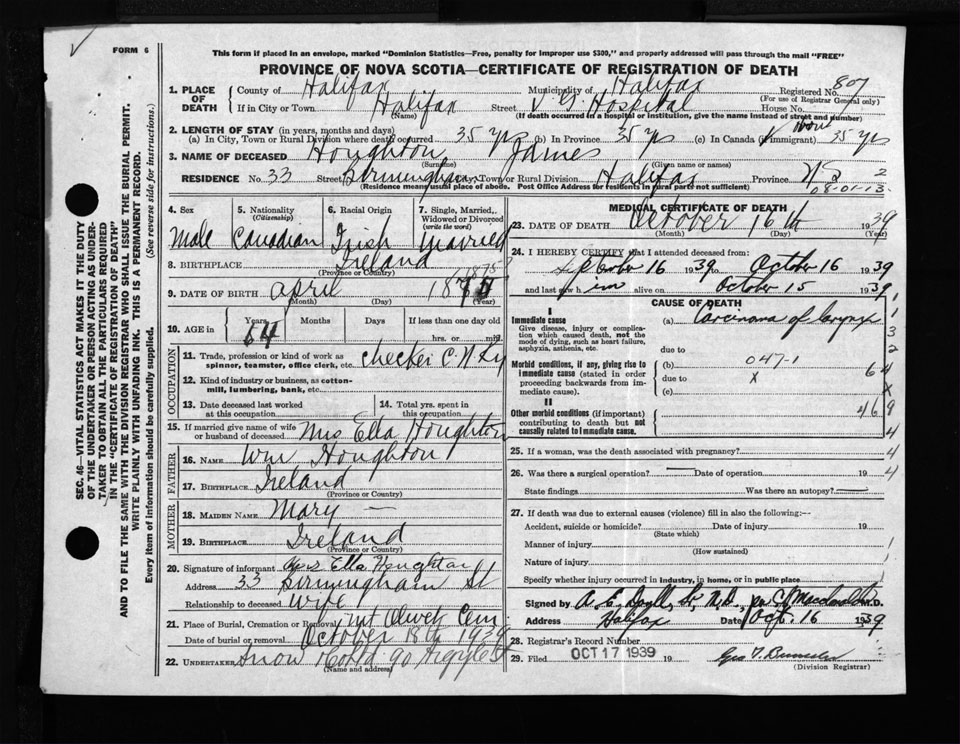 FORM 6
This form if placed in an envelope, marked "Dominion Statistics—Free, penalty for improper use $300," and properly addressed will pass through the mail "FREE"
PROVINCE OF NOVA SCOTIA—CERTIFICATE OF REGISTRATION OF DEATH
SEC. 46—VITAL STATISTICS ACT MAKES IT THE DUTY
OF THE UNDERTAKER OR PERSON ACTING AS UNDER-
TAKER TO OBTAIN ALL THE PARTICULARS REQUIRED
IN THE "CERTIFICATE OF REGISTRATION OF DEATH"
AND TO FILE THE SAME WITH THE DIVISION REGISTRAR WHO SHALL ISSUE THE BURIAL PERMIT.
WRITE PLAINLY WITH UNFADING INK. THIS IS A PERMANENT RECORD.
Every item of information should be carefully supplied. (See reverse side for instructions.)
1. PLACE OF DEATH County of Halifax Municipality of Halifax Registered No. 807
(For use of Registrar General only)
If in City or Town Halifax Street V G Hospital House No.
(Name) (If death occurred in a hospital or institution, give the name instead of street and number)
2. LENGTH OF STAY (in years, months and days)
(a) In City, Town or Rural Division where death occurred 35 yrs (b) In Province 35 yrs (c) In Canada (if immigrant) 35 yrs
3. NAME OF DECEASED Houghton James
(Surname) (Given name or names)
RESIDENCE No. 33 Street Birmingham City, Town or Rural Division Halifax Province N S 2
(Residence means usual place of abode. Post Office Address for residents in rural parts not sufficient) 08-01-13
4. Sex 5. Nationality (Citizenship) 6. Racial Origin 7. Single, Married, Widowed or Divorced (write the word)
Male Canadian Irish Married
8. BIRTHPLACE Ireland
(Province or Country)
9. DATE OF BIRTH April 1875
(Month) (Day) (Year)
10. AGE in Years Months Days If less than one day old
64 hrs. or min.
OCCUPATION
11. Trade, profession or kind of work as spinner, teamster, office clerk, etc. Checker C. N. Ry
12. Kind of industry or business, as cotton-mill, lumbering, bank, etc.
13. Date deceased last worked at this occupation 14. Total yrs. spent in this occupation
15. If married give name of wife or husband of deceased Mrs Ella Houghton
FATHER
16. NAME Wm Houghton
17. BIRTHPLACE Ireland
(Province or Country)
MOTHER
18. MAIDEN NAME Mary —
19. BIRTHPLACE Ireland
(Province or Country)
20. Signature of informant Mrs Ella Houghton
Address 33 Birmingham St
Relationship to deceased wife
21. Place of Burial, Cremation or Removal Mt Olivet Cem
Date of burial or removal October 18th 1939
22. UNDERTAKER Snow & Co Ltd 90 Argyle St
(Name and address)
MEDICAL CERTIFICATE OF DEATH
23. DATE OF DEATH October 16th 1939
(Month) (Day) (Year)
24. I HEREBY CERTIFY that I attended deceased from:
September 16 1939 to October 16 1939
and last saw him alive on October 15 1939
CAUSE OF DEATH
I
Immediate cause (a) Carcinoma of larynx
Give disease, injury or complication which caused death, not the mode of dying, such as heart failure, asphyxia, asthenia, etc.
due to
Morbid conditions, if any, giving rise to immediate cause (stated in order proceeding backwards from immediate cause). (b) 047-1
due to x
(c)
II
Other morbid conditions (if important) contributing to death but not causally related to immediate cause. 469
25. If a woman, was the death associated with pregnancy?
26. Was there a surgical operation? — Date of operation 19
State findings Was there an autopsy? —
27. If death was due to external causes (violence) fill in also the following:—
Accident, suicide or homicide? Date of injury 19
(State which)
Manner of injury
(How sustained)
Nature of injury
Specify whether injury occurred in industry, in home, or in public place
Signed by A. E. Doull, Sr, M.D. per C. Macdonald M.D.
Address Halifax Date Oct. 16 1939
28. Registrar's Record Number
29. Filed OCT 17 1939 19
(Division Registrar)